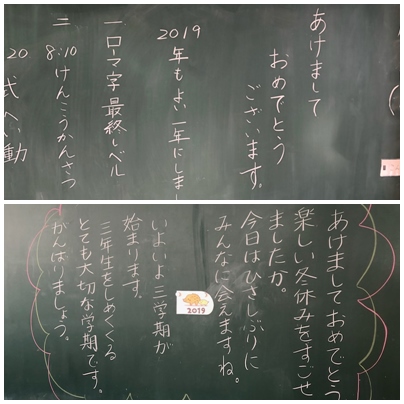 あけまして
おめでとう
ございます。
2019
年もよい一年にしまし
一ローマ字最終レベル
二
8:10
けんこうかんさつ
20
式へい動
あけましておめでとう
楽しい冬休みをすごせ
ましたか。
今日はひさしぶりに
みんなに会えますね。
2019
いよいよ三学期が
始まります。
三年生をしめくくる
とても大切な学期です。
がんばりましょう。